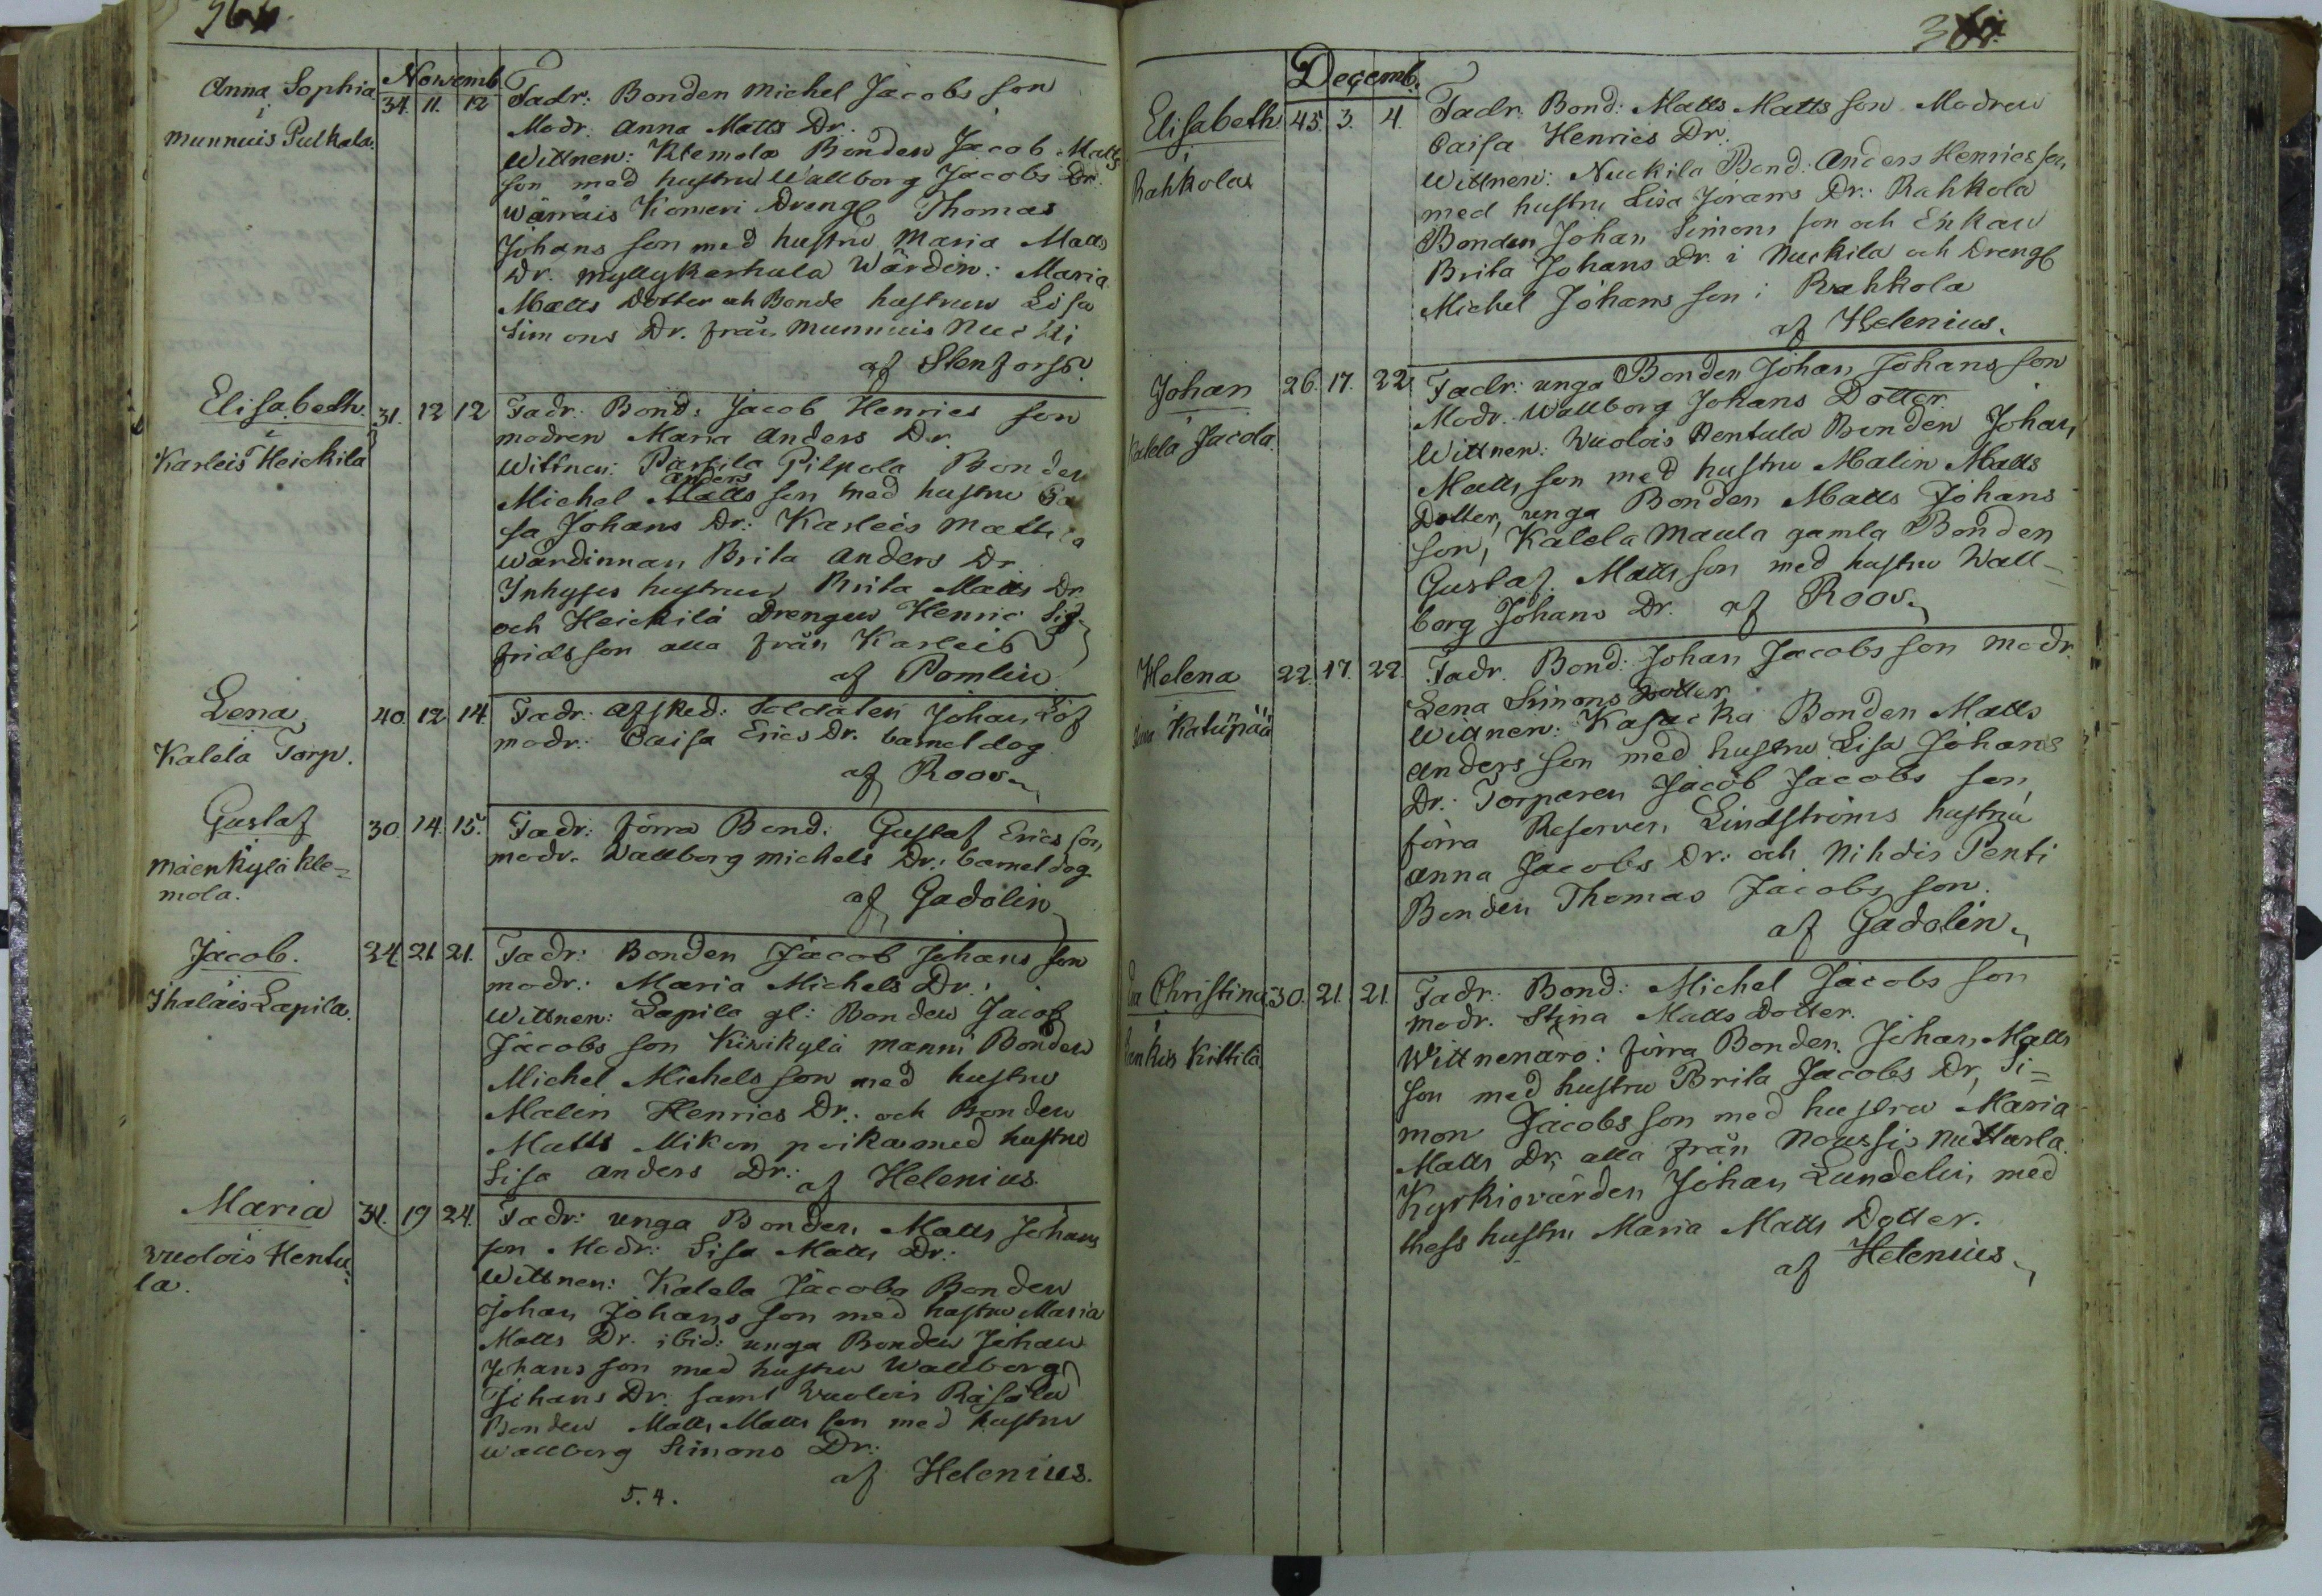 Nowemb.
Anna Sophia 34. 11. 12 Fadr: Bonden Michel Jacobs son
i
Munnuis Pulkala. Modr. Anna Matts Dr.
Wittnen: Klemola Bonden Jacob Matts
son med hustru Wallborg Jacobs Dr.
Wärräis Komeri Dreng Thomas
Johans son med hustru Maria Matts
Dr. Myllykerhula Wärdin: Maria
Matts Dotter och Bonde hustrun Lisa
Simons Dr. från Munnuis
af Stenfors.
Elisabeth. 31. 12 12 Fadr: Bond: Jacob Henrics son
i
Karleis Heickilä modren Maria Anders Dr.
Wittnen: Parsila Pilpola Bonden
Anders
Michel Matts son med hustru
sa Johans Dr: Karleis Mattila
wärdinnan Brita Anders Dr.
Inhyses hustrun Brita Matts Dr
och Heickilä Drengen Henric Sig-
fridsson alla från Karleis
af Pomlin
Lena 40. 12 14. Fadr: Afsked: Soldaten Johan Löf
Kalela Torp. modr: Caisa Erics Dr. barnet dog
af Roos
Gustaf 30. 14. 15. Fadr: förra Bond: Gustaf Erics son
Mäenkylä Kle= modr. Wallborg Michels Dr: barnet dog
mola. af Gadolin
Jacob. 24. 21. 21. Fadr: Bonden Jacob Johans son
i
Ihalais Lapila. modr: Maria Michels Dr:
Wittnen: Lapila gl: Bonden Jacob
Jacobs son Kiwikylä Manni Bonden
Michel Michels son med hustru
Malin Henrics Dr: och Bonden
Matts Mikon poika med hustru
Lisa Anders Dr: af Helenius
Maria 31. 19 24. Fadr: unga Bonden Matts Johans
i
Wuolois Hentu= son Modr: Lisa Matts Dr:
la. Wittnen: Kalela Jacola Bonden
Johan Johans son med hustru Maria
Matts Dr. ibid: unga Bonden Johan
Johans son med hustru Wallborg
Johans Dr. samt Wuolois Räsälä
Bonden Matts Matts son med hustru
Wallborg Simons Dr:
af Helenius.
5. 4.
Decemb.
Elisabeth 45. 3. 4. Fadr. Bond: Matts Matts son Modren
i
Rahkola Caisa Henrics Dr.
Wittnen: Nuckila Bond: Anders Henrics son
med hustru Lisa Jörans Dr: Rahkola
Bonden Johan Simons son och Enkan
Brita Johans Dr. i Nuckila och Dreng
Michel Johans son i Rahkola
af Helenius.
Johan 26. 17. 22. Fadr: unga Bonden Johan Johans son
i
Kalela Jacola. Modr. Wallborg Johans Dotter.
Wittnen: Wuolois Hentula Bonden Johan
Matts son med hustru Malin Matts
Dotter, unga Bonden Matts Johans
son, Kalela Maula gamla Bonden
Gustaf Matts son med hustru Wall=
borg Johans Dr. af Roos
Helena 22. 17. 22. Fadr. Bond: Johan Jacobs son modr.
Katinpää Lena Simons Dotter
Wittnen: Kasacka Bonden Matts
Anders son med hustru Lisa Johans
Dr: Torparen Jacob Jacobs son
förra Reserven Lindströms hustru
Anna Jacobs Dr: och Nihdis Penti
Bonden Thomas Jacobs son.
af Gadolin
Eva Christina 30. 21. 21. Fadr: Bond: Michel Jacobs son
i
Kivtilä modr. Stina Matts Dotter.
Wittnen äro: förra Bonden Johan Matts
son med hustru Brita Jacobs Dr, Si=
mon Jacobs son med hustru Maria
Matts Dr, alla från Nousis
Kyrkiovärden Johan Lundelin med
thess hustru Maria Matts Dotter.
af Helenius